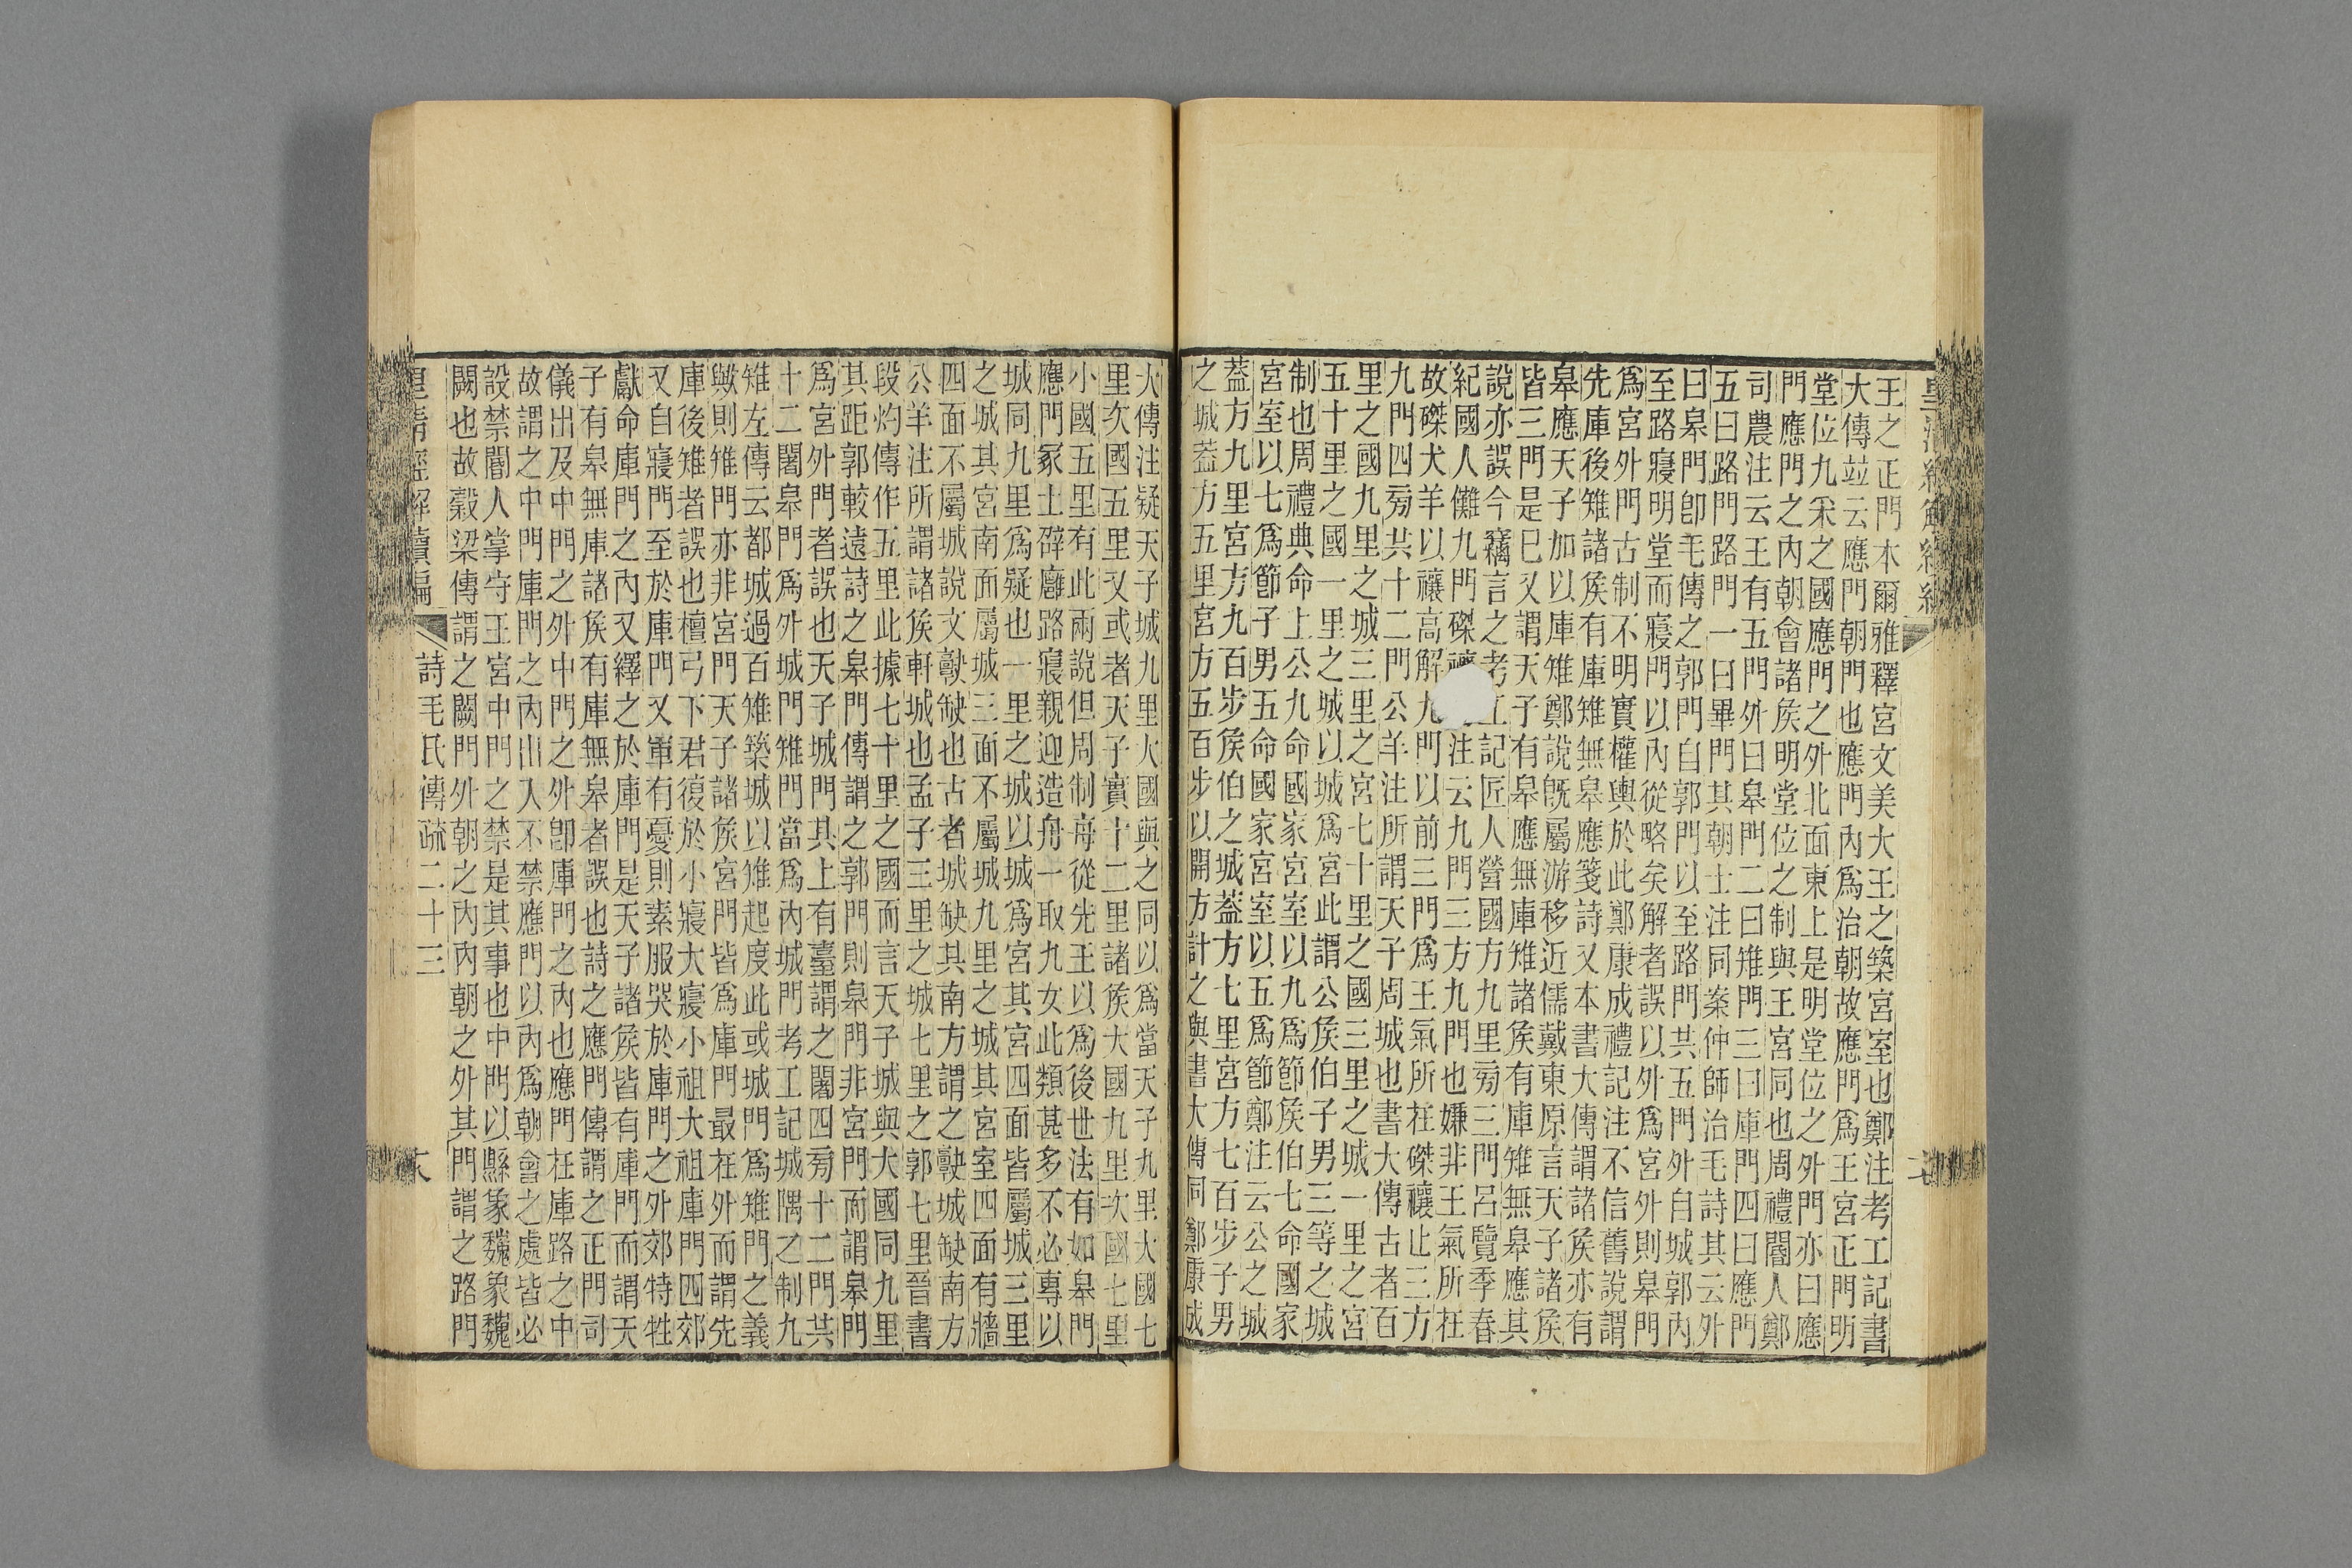 王之正門本爾雅釋宮文美大王之築宮室也鄭注考工記書
大傳竝云應門朝門也應門內爲治朝故應門爲王宮正門明
堂位九采之國應門之外北面東上是明堂位之外門亦曰應
門應門之內朝會諸矦明堂位之制與王宮同也周禮閽人鄭
司農注云王有五門外曰皋門二曰雉門三曰庫門四曰應門
五曰路門路門一曰畢門其朝士注同案仲師治毛詩其云外
曰皋門卽毛傳之郭門自郭門以至路門共五門外自城郭內
至路寢明堂而寢門以內從略矣解者誤以外爲宮外則皋門
爲宮外門古制不明實權輿於此鄭康成禮記注不信舊說謂
先庫後雉諸矦有庫雉無皋應箋詩又本書大傳謂諸矦亦有
皋應天子加以庫雉鄭說旣屬游移近儒戴東原言天子諸矦
皆三門是已又謂天子有皋應無庫雉諸矦有庫雉無皋應其
說亦誤今竊言之考工記匠人營國方九里旁三門呂覽季春
紀國人儺九門磔禳注云九門三方九門也嫌非王氣所在
故磔犬羊以禳高解九門以前三門爲王氣所在磔禳止三方
九門四旁共十二門公羊注所謂天子周城也書大傳古者百
里之國九里之城三里之宮七十里之國三里之城一里之宮
五十里之國一里之城以城爲宮此謂公矦伯子男三等之城
制也周禮典命上公九命國家宮室以九爲節矦伯七命國家
宮室以七爲節子男五命國家宮室以五爲節鄭注云公之城
蓋方九里宮方九百步矦伯之城蓋方七里宮方七百步子男
之城蓋方五里宮方五百步以開方計之與書大傳同鄭康成
大傳注疑天子城九里大國與之同以爲當天子九里大國七
里次國五里又或者天子實十二里諸矦大國九里次國七里
小國五里有此兩說但周制毎從先王以爲後世法有如皋門
應門冢土辟廱路寢親迎造舟一取九女此類甚多不必專以
城同九里爲疑也一里之城以城爲宮其宮四面皆屬城三里
之城其宮南面屬城三面不屬城九里之城其宮室四面有牆
四面不屬城說文𡙕缺也古者城缺其南方謂之𡙕城缺南方
公羊注所謂諸矦軒城也孟子三里之城七里之郭七里晉書
段灼傳作五里此據七十里之國而言天子城與大國同九里
其距郭較遠詩之皋門傳謂之郭門則皋門非宮門而謂皋門
爲宮外門者誤也天子城門其上有臺謂之闍四旁十二門共
十二闍皋門爲外城門雉門當爲內城門考工記城隅之制九
雉左傳云都城過百雉築城以雉起度此或城門爲雉門之義
與則雉門亦非宮門天子諸矦宮門皆爲庫門最在外而謂先
庫後雉者誤也檀弓下君復於小寢大寢小祖大祖庫門四郊
又自寢門至於庫門又軍有憂則素服哭於庫門之外郊特牲
獻命庫門之內又繹之於庫門是天子諸矦皆有庫門而謂天
子有皋無庫諸矦有庫無皋者誤也詩之應門傳謂之正門司
儀出及中門之外中門之外卽庫門之內也應門在庫路之中
故謂之中門庫門之內出入不禁應門以內爲朝會之處皆必
設禁閽人掌守王宮中門之禁是其事也中門以縣象魏象魏
闕也故穀梁傳謂之闕門外朝之內內朝之外其門謂之路門
皇清經解續編 詩毛氏傳疏二十三